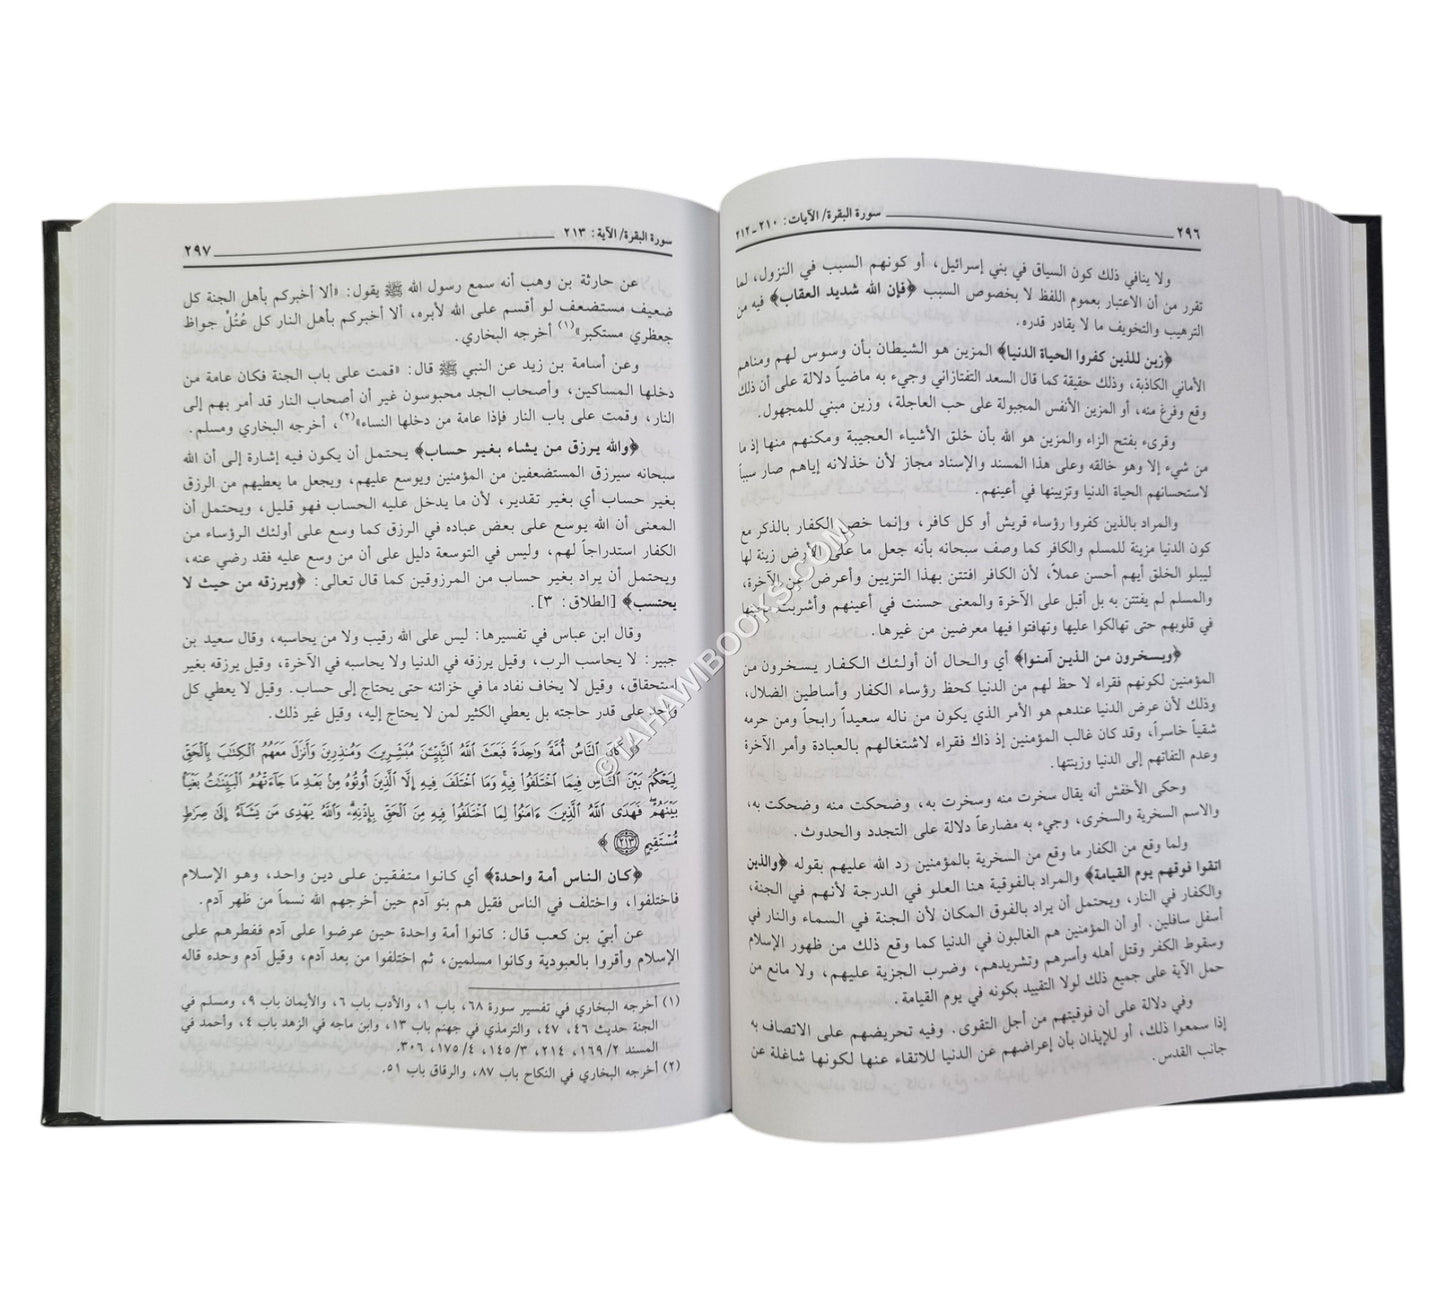 ٢٩٦ سورة البقرة/ الآيات: ٢١٠ - ٢١٢
ولا ينافي ذلك كون السياق في بني إسرائيل، أو كونهم السبب في النزول، لما
تقرر من أن الاعتبار بعموم اللفظ لا بخصوص السبب ﴿فإن الله شديد العقاب﴾ فيه من
الترهيب والتخويف ما لا يقادر قدره.
﴿زين للذين كفروا الحياة الدنيا﴾ المزين هو الشيطان بأن وسوس لهم ومناهم
الأماني الكاذبة، وذلك حقيقة كما قال السعد التفتازاني وجيء به ماضياً دلالة على أن ذلك
وقع وفرغ منه، أو المزين الأنفس المجبولة على حب العاجلة، وزين مبني للمجهول.
وقرىء بفتح الزاء والمزين هو الله بأن خلق الأشياء العجيبة ومكنهم منها إذ ما
من شيء إلا وهو خالقه وعلى هذا المسند والإسناد مجاز لأن خذلانه إياهم صار سبباً
لاستحسانهم الحياة الدنيا وتزيينها في أعينهم.
والمراد بالذين كفروا رؤساء قريش أو كل كافر، وإنما خص الكفار بالذكر مع
كون الدنيا مزينة للمسلم والكافر كما وصف سبحانه بأنه جعل ما على الأرض زينة لها
ليبلو الخلق أيهم أحسن عملاً، لأن الكافر افتتن بهذا التزيين وأعرض عن الآخرة،
والمسلم لم يفتتن به بل أقبل على الآخرة والمعنى حسنت في أعينهم وأشربت حبها
في قلوبهم حتى تهالكوا عليها وتهافتوا فيها معرضين من غيرها.
﴿ويسخرون من الذين آمنوا﴾ أي والحال أن أولئك الكفار يسخرون من
المؤمنين لكونهم فقراء لا حظ لهم من الدنيا كحظ رؤساء الكفار وأساطين الضلال،
وذلك لأن عرض الدنيا عندهم هو الأمر الذي يكون من ناله سعيداً رابحاً ومن حرمه
شقياً خاسراً، وقد كان غالب المؤمنين إذ ذاك فقراء لاشتغالهم بالعبادة وأمر الآخرة
وعدم التفاتهم إلى الدنيا وزينتها.
وحكى الأخفش أنه يقال سخرت منه وسخرت به، وضحكت منه وضحكت به،
والاسم السخرية والسخرى، وجيء به مضارعاً دلالة على التجدد والحدوث.
ولما وقع من الكفار ما وقع من السخرية بالمؤمنين رد الله عليهم بقوله ﴿والذين
اتقوا فوقهم يوم القيامة﴾ والمراد بالفوقية هنا العلو في الدرجة لأنهم في الجنة،
والكفار في النار، ويحتمل أن يراد بالفوق المكان لأن الجنة في السماء والنار في
أسفل سافلين، أو أن المؤمنين هم الغالبون في الدنيا كما وقع ذلك من ظهور الإسلام
وسقوط الكفر وقتل أهله وأسرهم وتشريدهم، وضرب الجزية عليهم، ولا مانع من
حمل الآية على جميع ذلك لولا التقييد بكونه في يوم القيامة.
وفي دلالة على أن فوقيتهم من أجل التقوى. وفيه تحريضهم على الاتصاف به
إذا سمعوا ذلك، أو للإيذان بأن إعراضهم عن الدنيا للاتقاء عنها لكونها شاغلة عن
جانب القدس.
سورة البقرة/ الآية: ٢١٣ ٢٩٧
عن حارثة بن وهب أنه سمع رسول الله ﷺ يقول: «ألا أخبركم بأهل الجنة كل
ضعيف مستضعف لو أقسم على الله لأبره، ألا أخبركم بأهل النار كل عُتُلٍّ جواظ
جعظري مستكبر»(١) أخرجه البخاري.
وعن أسامة بن زيد عن النبي ﷺ قال: «قمت على باب الجنة فكان عامة من
دخلها المساكين، وأصحاب الجد محبوسون غير أن أصحاب النار قد أمر بهم إلى
النار، وقمت على باب النار فإذا عامة من دخلها النساء»(٢)، أخرجه البخاري ومسلم.
﴿والله يرزق من يشاء بغير حساب﴾ يحتمل أن يكون فيه إشارة إلى أن الله
سبحانه سيرزق المستضعفين من المؤمنين ويوسع عليهم، ويجعل ما يعطيهم من الرزق
بغير حساب أي بغير تقدير، لأن ما يدخل عليه الحساب فهو قليل، ويحتمل أن
المعنى أن الله يوسع على بعض عباده في الرزق كما وسع على أولئك الرؤساء من
الكفار استدراجاً لهم، وليس في التوسعة دليل على أن من وسع عليه فقد رضي عنه،
ويحتمل أن يراد بغير حساب من المرزوقين كما قال تعالى: ﴿ويرزقه من حيث لا
يحتسب﴾ [الطلاق: ٣].
وقال ابن عباس في تفسيرها: ليس على الله رقيب ولا من يحاسبه، وقال سعيد بن
جبير: لا يحاسب الرب، وقيل يرزقه في الدنيا ولا يحاسبه في الآخرة، وقيل يرزقه بغير
استحقاق، وقيل لا يخاف نفاد ما في خزائنه حتى يحتاج إلى حساب. وقيل لا يعطي كل
واحد على قدر حاجته بل يعطي الكثير لمن لا يحتاج إليه، وقيل غير ذلك.
﴿كَانَ النَّاسُ أُمَّةً وَاحِدَةً فَبَعَثَ اللَّهُ النَّبِيِّينَ مُبَشِّرِينَ وَمُنذِرِينَ وَأَنزَلَ مَعَهُمُ الْكِتَابَ بِالْحَقِّ
لِيَحْكُمَ بَيْنَ النَّاسِ فِيمَا اخْتَلَفُوا فِيهِ وَمَا اخْتَلَفَ فِيهِ إِلَّا الَّذِينَ أُوتُوهُ مِن بَعْدِ مَا جَاءَتْهُمُ الْبَيِّنَاتُ بَغْيًا
بَيْنَهُمْ فَهَدَى اللَّهُ الَّذِينَ ءَامَنُوا لِمَا اخْتَلَفُوا فِيهِ مِنَ الْحَقِّ بِإِذْنِهِ وَاللَّهُ يَهْدِي مَن يَشَاءُ إِلَى صِرَاطٍ
مُّسْتَقِيمٍ ٢١٣﴾
﴿كان الناس أمة واحدة﴾ أي كانوا متفقين على دين واحد، وهو الإسلام
فاختلفوا، واختلف في الناس فقيل هم بنو آدم حين أخرجهم الله نسماً من ظهر آدم.
عن أبيّ بن كعب قال: كانوا أمة واحدة حين عرضوا على آدم ففطرهم على
الإسلام وأقروا بالعبودية وكانوا مسلمين، ثم اختلفوا من بعد آدم، وقيل آدم وحده قاله
(١) أخرجه البخاري في تفسير سورة ٦٨، باب ١، والأدب باب ٦، والأيمان باب ٩، ومسلم في
الجنة حديث ٤٦، ٤٧، والترمذي في جهنم باب ١٣، وابن ماجه في الزهد باب ٤، وأحمد في
المسند ١٦٩/٢، ٢١٤، ١٤٥/٣، ١٧٥/٤، ٣٠٦.
(٢) أخرجه البخاري في النكاح باب ٨٧، والرقاق باب ٥١.
©TAHAWIBOOKS.COM